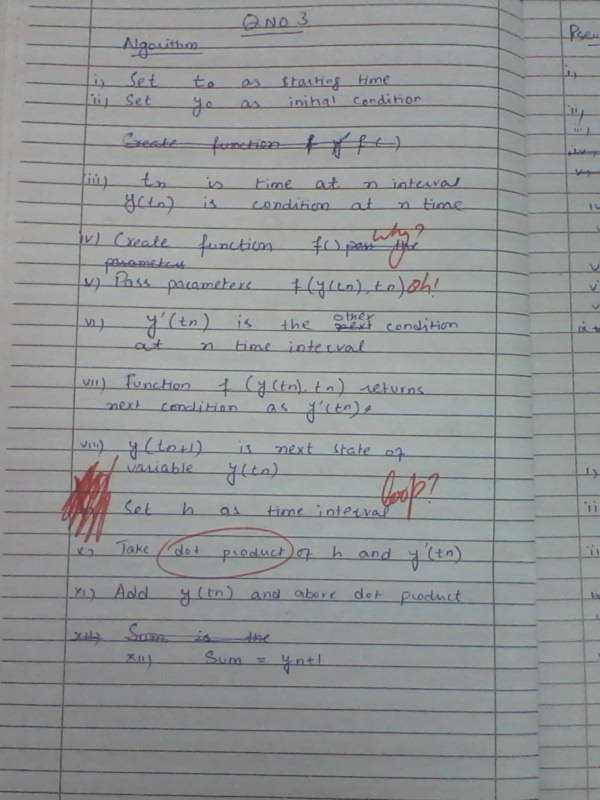 Q NO 3
Algorithm
i) Set to as starting time
ii) Set yo as initial condition
Create function f y' f ( )
iii) tn is time at n interval
y(tn) is condition at n time
why?
iv) Create function f() pass the
parameters
v) Pass parameters f (y(tn), tn) Oh!
other
vi) y'(tn) is the next condition
at n time interval
vii) Function f (y(tn), tn) returns
next condition as y'(tn).
viii) y(tn+1) is next state of
variable y(tn)
loop?
Set h as time interval
x) Take 'dot product' of h and y'(tn)
xi) Add y(tn) and above dot product
xii) Sum is the
xii) Sum = yn+1
Pseu
i)
ii)
iii)